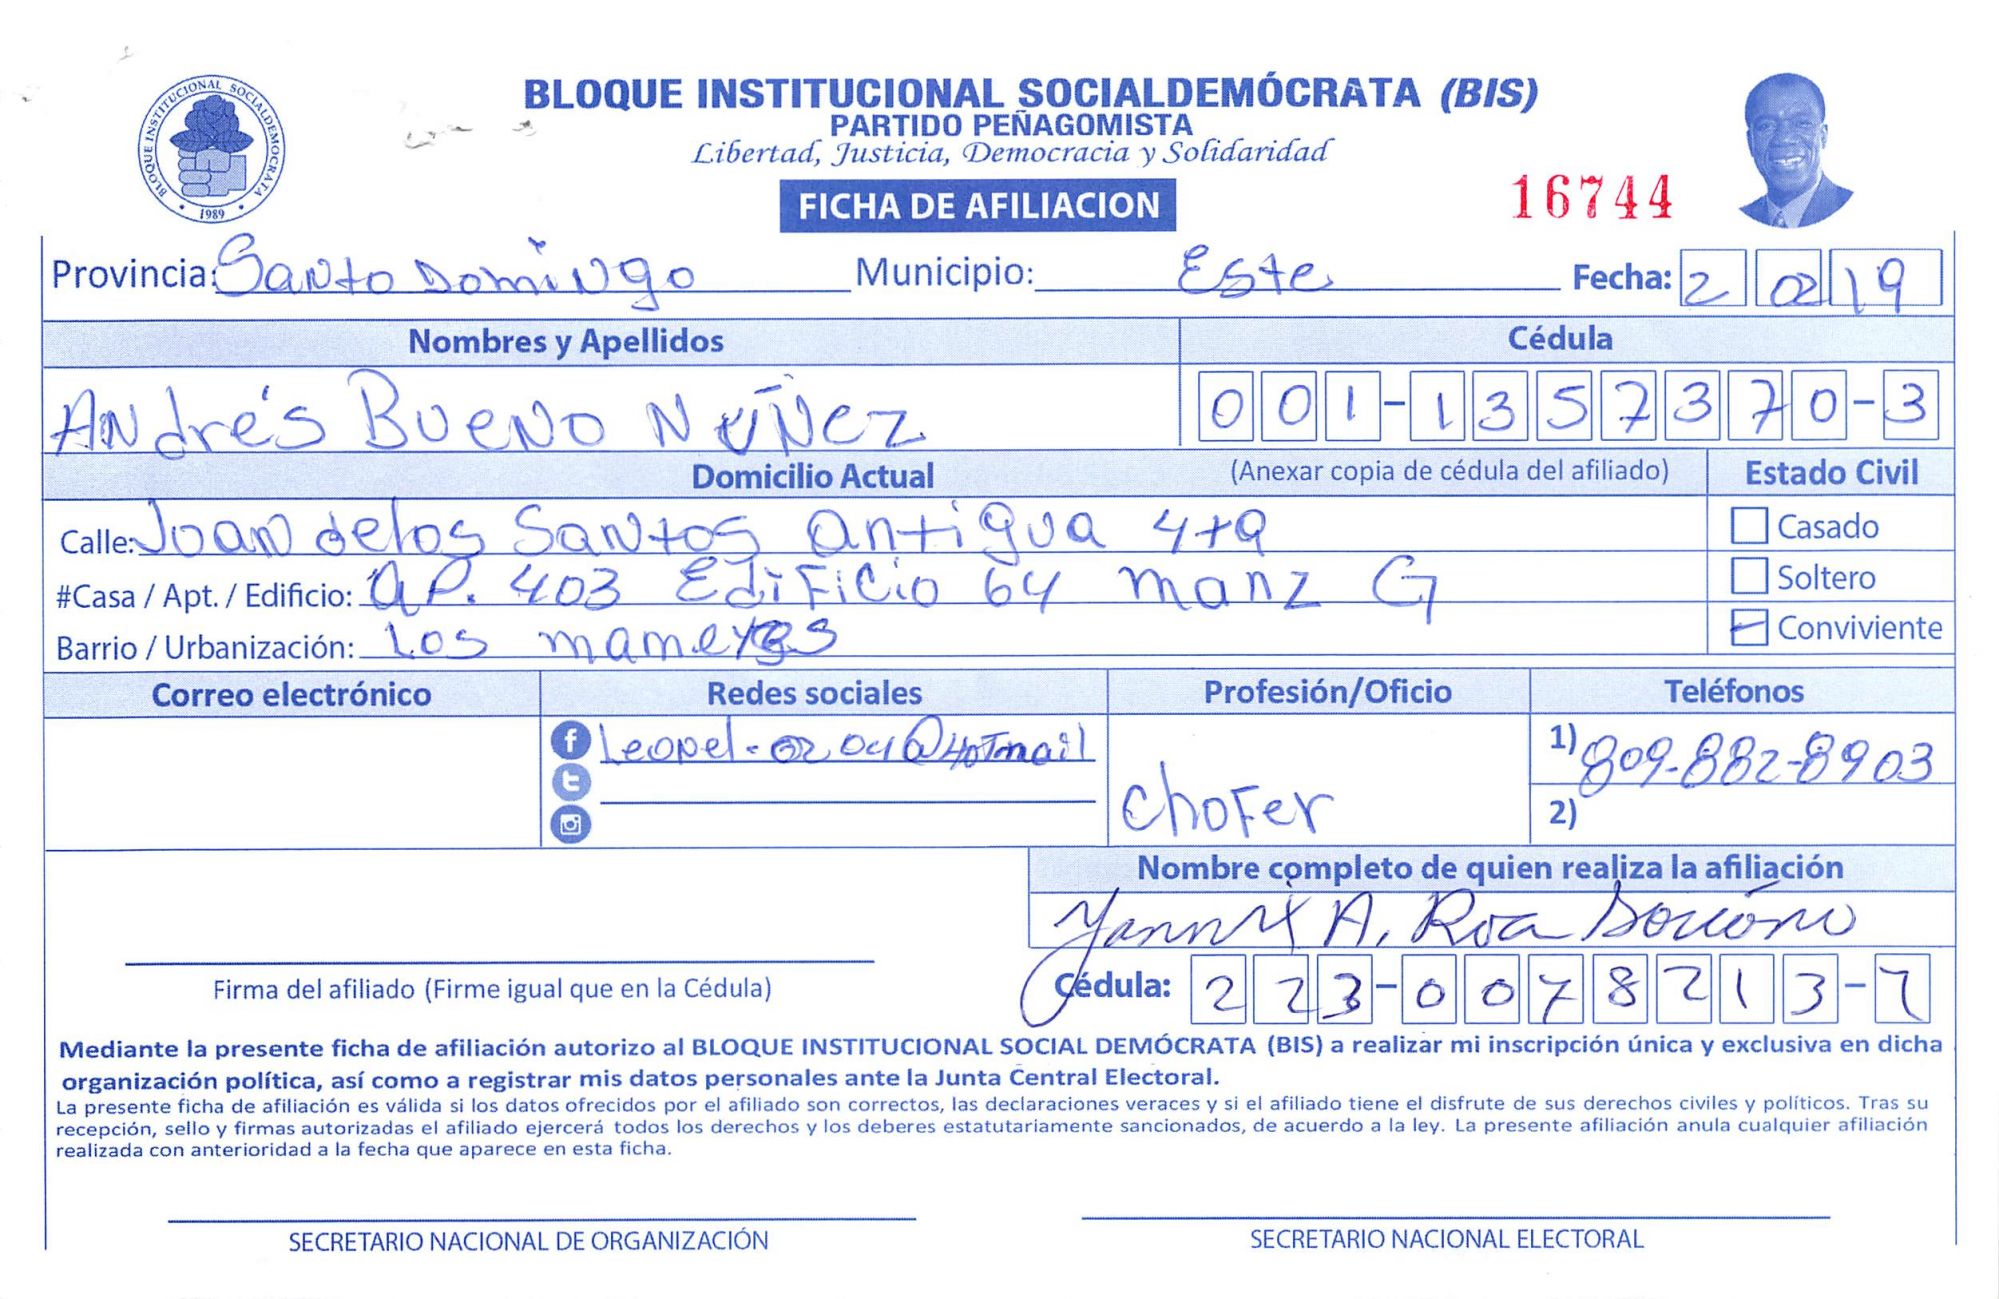 BLOQUE INSTITUCIONAL SOCIALDEMOCRATA
1989
BLOQUE INSTITUCIONAL SOCIALDEMÓCRATA (BIS)
PARTIDO PEÑAGOMISTA
Libertad, Justicia, Democracia y Solidaridad
FICHA DE AFILIACION
16744
Provincia: Santo Domingo Municipio: Este Fecha: 2 02 19
Nombres y Apellidos Cédula
Andrés Bueno Núñez 001-1357370-3
Domicilio Actual (Anexar copia de cédula del afiliado) Estado Civil
Calle: Juan de los Santos antigua 4ta Casado
#Casa / Apt. / Edificio: ap. 403 Edificio 64 manz G Soltero
Barrio / Urbanización: Los mameyes Conviviente
Correo electrónico Redes sociales Profesión/Oficio Teléfonos
Leopel-0204@Hotmail 1) 809-882-8903
chofer 2)
Nombre completo de quien realiza la afiliación
A. Roa
Firma del afiliado (Firme igual que en la Cédula) Cédula: 223-0078213-7
Mediante la presente ficha de afiliación autorizo al BLOQUE INSTITUCIONAL SOCIAL DEMÓCRATA (BIS) a realizar mi inscripción única y exclusiva en dicha
organización política, así como a registrar mis datos personales ante la Junta Central Electoral.
La presente ficha de afiliación es válida si los datos ofrecidos por el afiliado son correctos, las declaraciones veraces y si el afiliado tiene el disfrute de sus derechos civiles y políticos. Tras su
recepción, sello y firmas autorizadas el afiliado ejercerá todos los derechos y los deberes estatutariamente sancionados, de acuerdo a la ley. La presente afiliación anula cualquier afiliación
realizada con anterioridad a la fecha que aparece en esta ficha.
SECRETARIO NACIONAL DE ORGANIZACIÓN SECRETARIO NACIONAL ELECTORAL